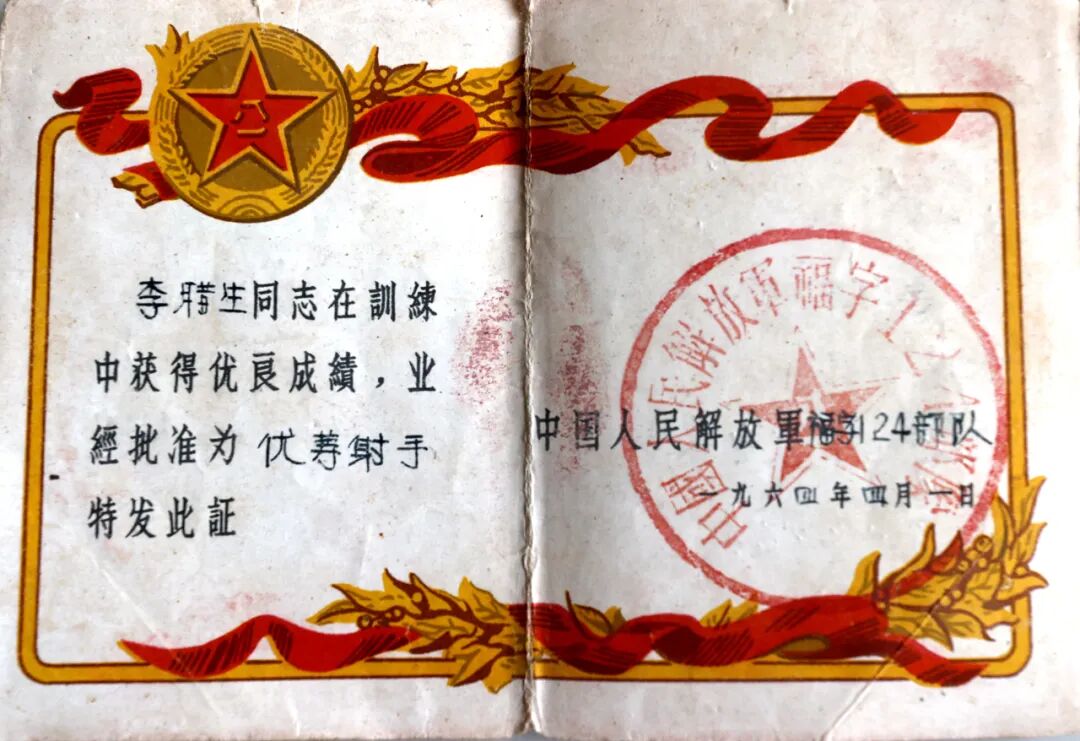 八一
李腊生同志在訓練
中获得优良成績，业
經批准为 优等射手
特发此証
中国人民解放軍福字124部队
一九六四年四月一日
中國人民解放軍福字